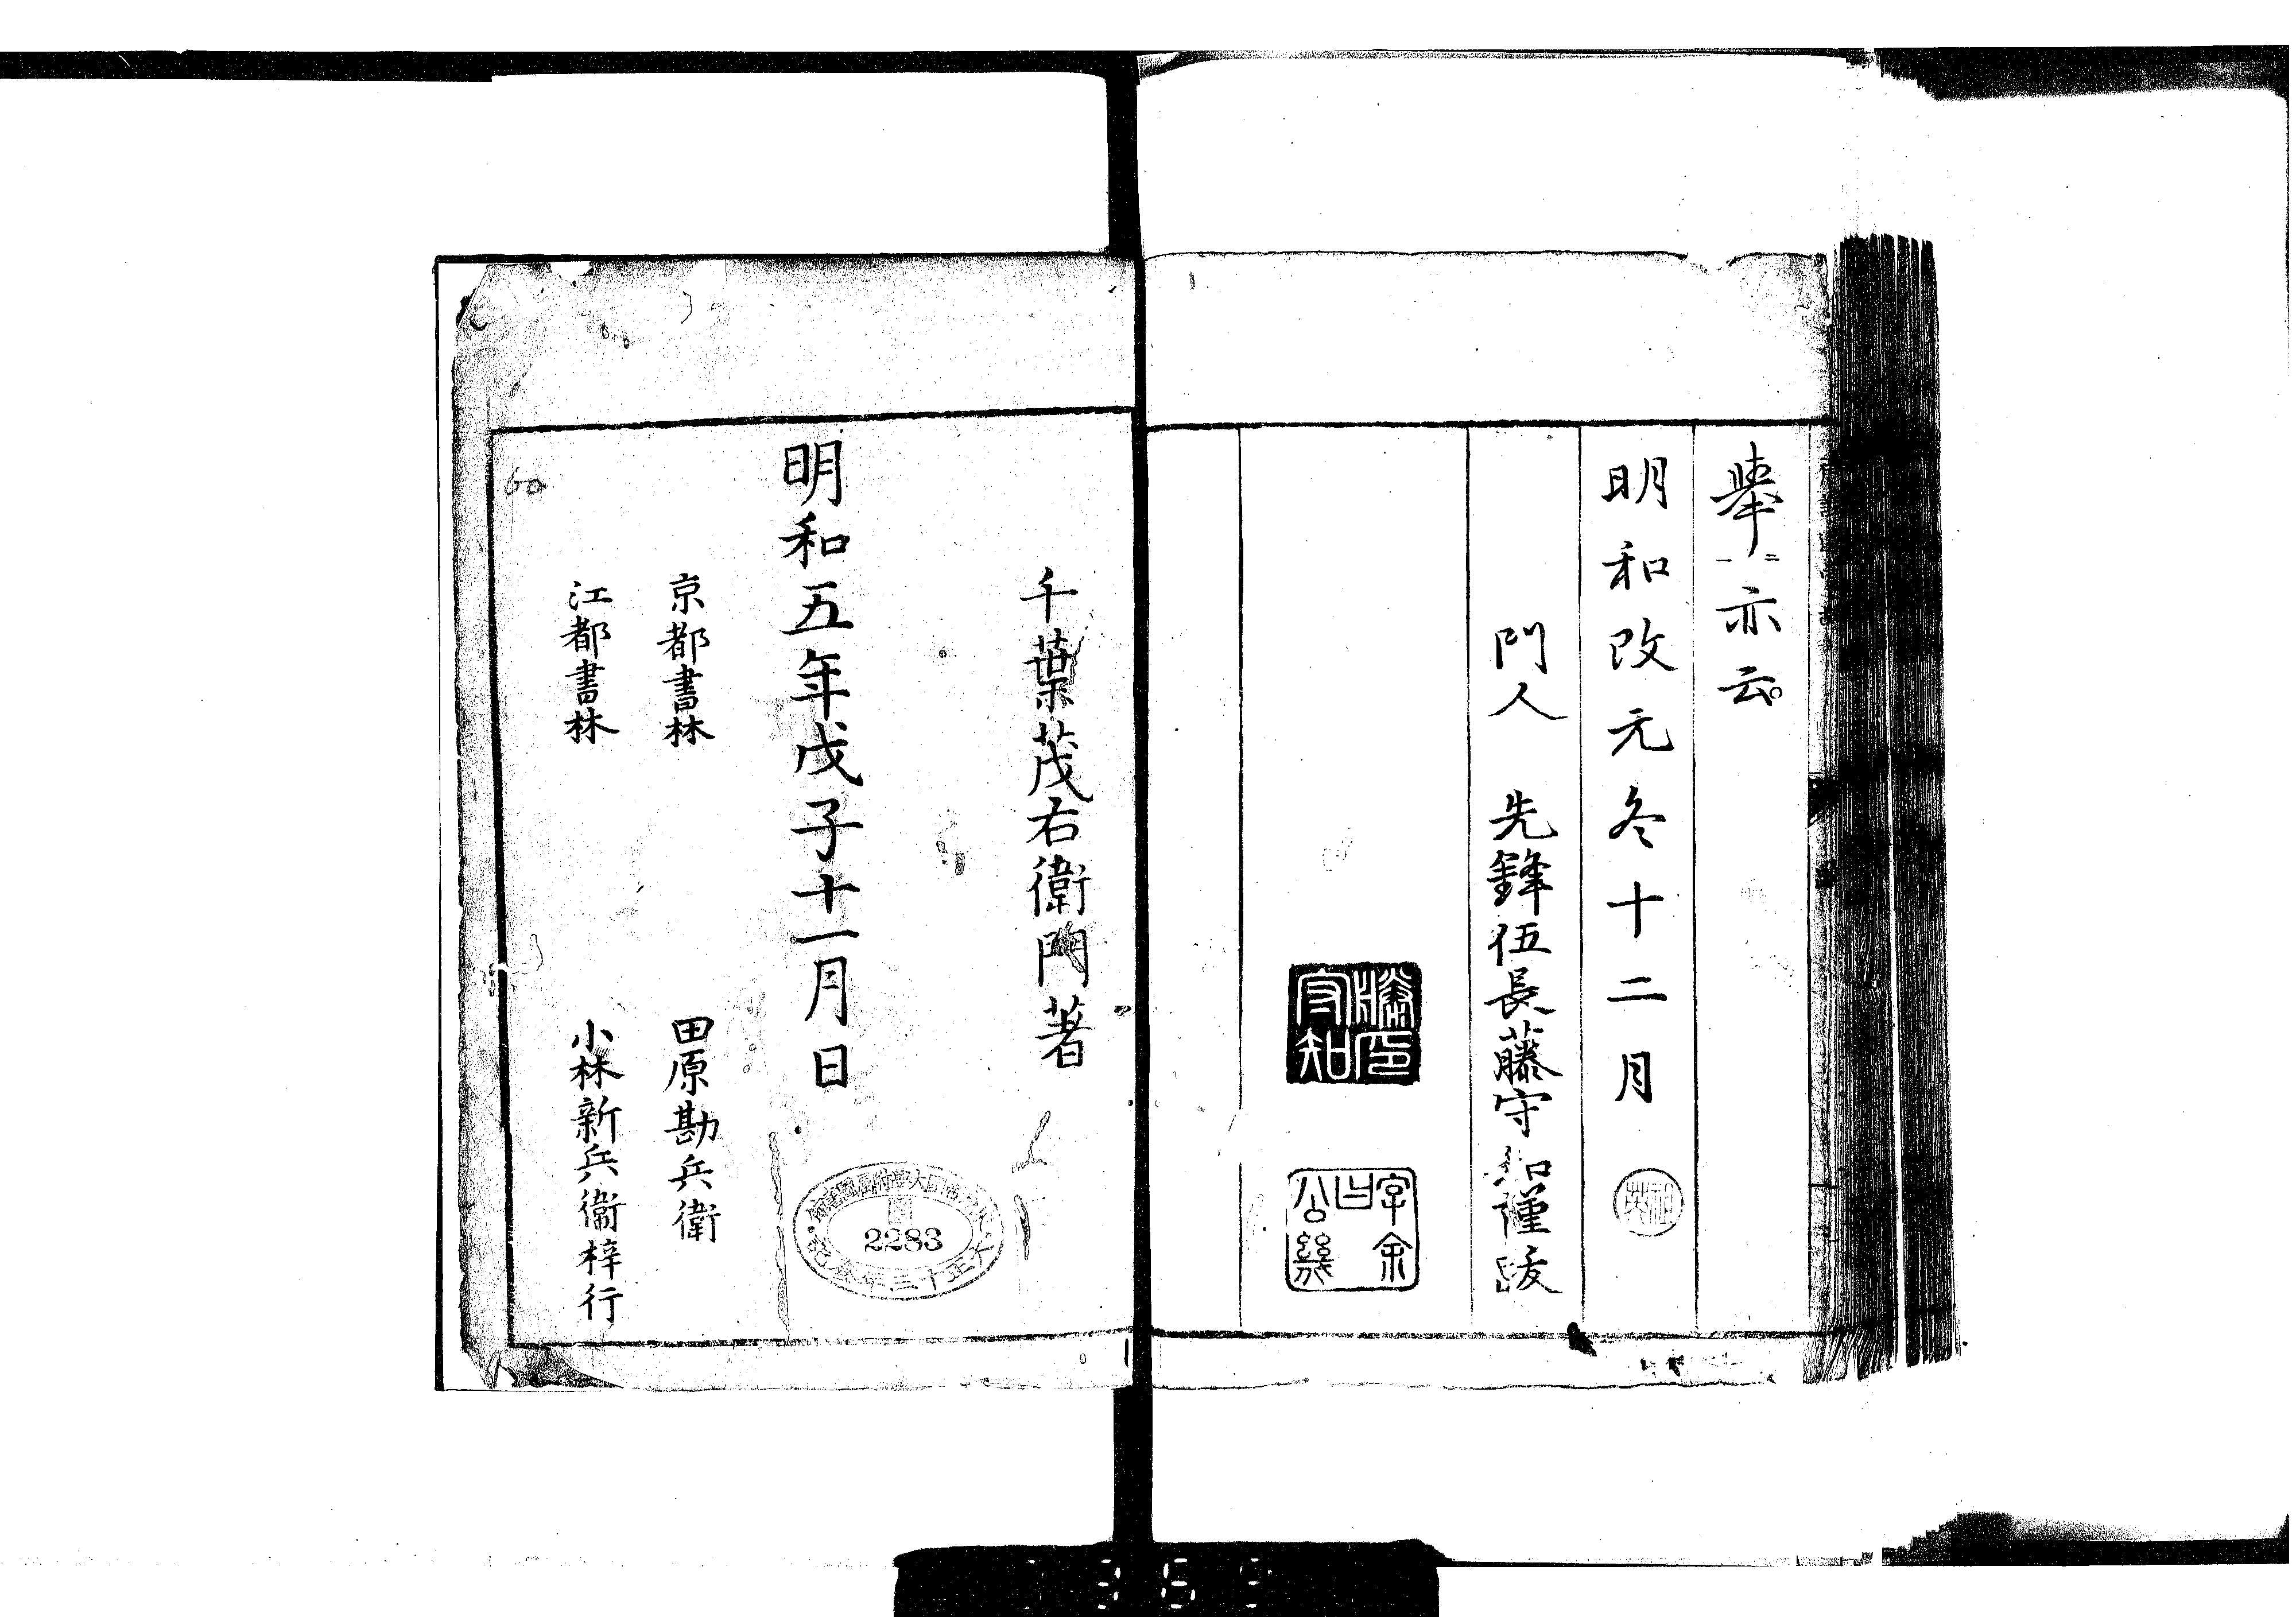 舉二一亦云。
明和改元冬十二月
門人　先鋒伍長藤守知謹跋
藤印守知
字余曰公幾
千葉茂右衛門著
明和五年戊子十一月日
2283
京都書林　田原勘兵衛
江都書林　小林新兵衞梓行
60